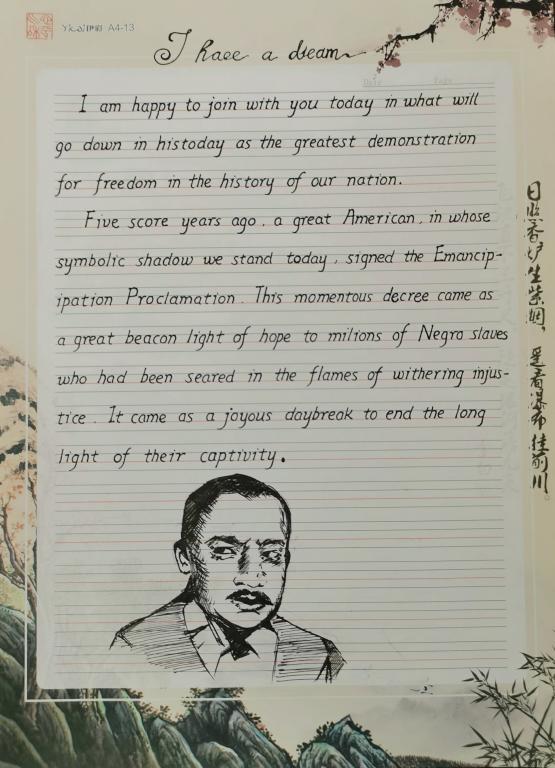 Yicai A4-13
I have a dream
Date Page
I am happy to join with you today in what will
go down in histoday as the greatest demonstration
for freedom in the history of our nation.
Five score years ago, a great American, in whose
symbolic shadow we stand today, signed the Emancip-
ipation Proclamation. This momentous decree came as
a great beacon light of hope to milions of Negro slaves
who had been seared in the flames of withering injus-
tice. It came as a joyous daybreak to end the long
light of their captivity.
日照香炉生紫烟，遥看瀑布挂前川